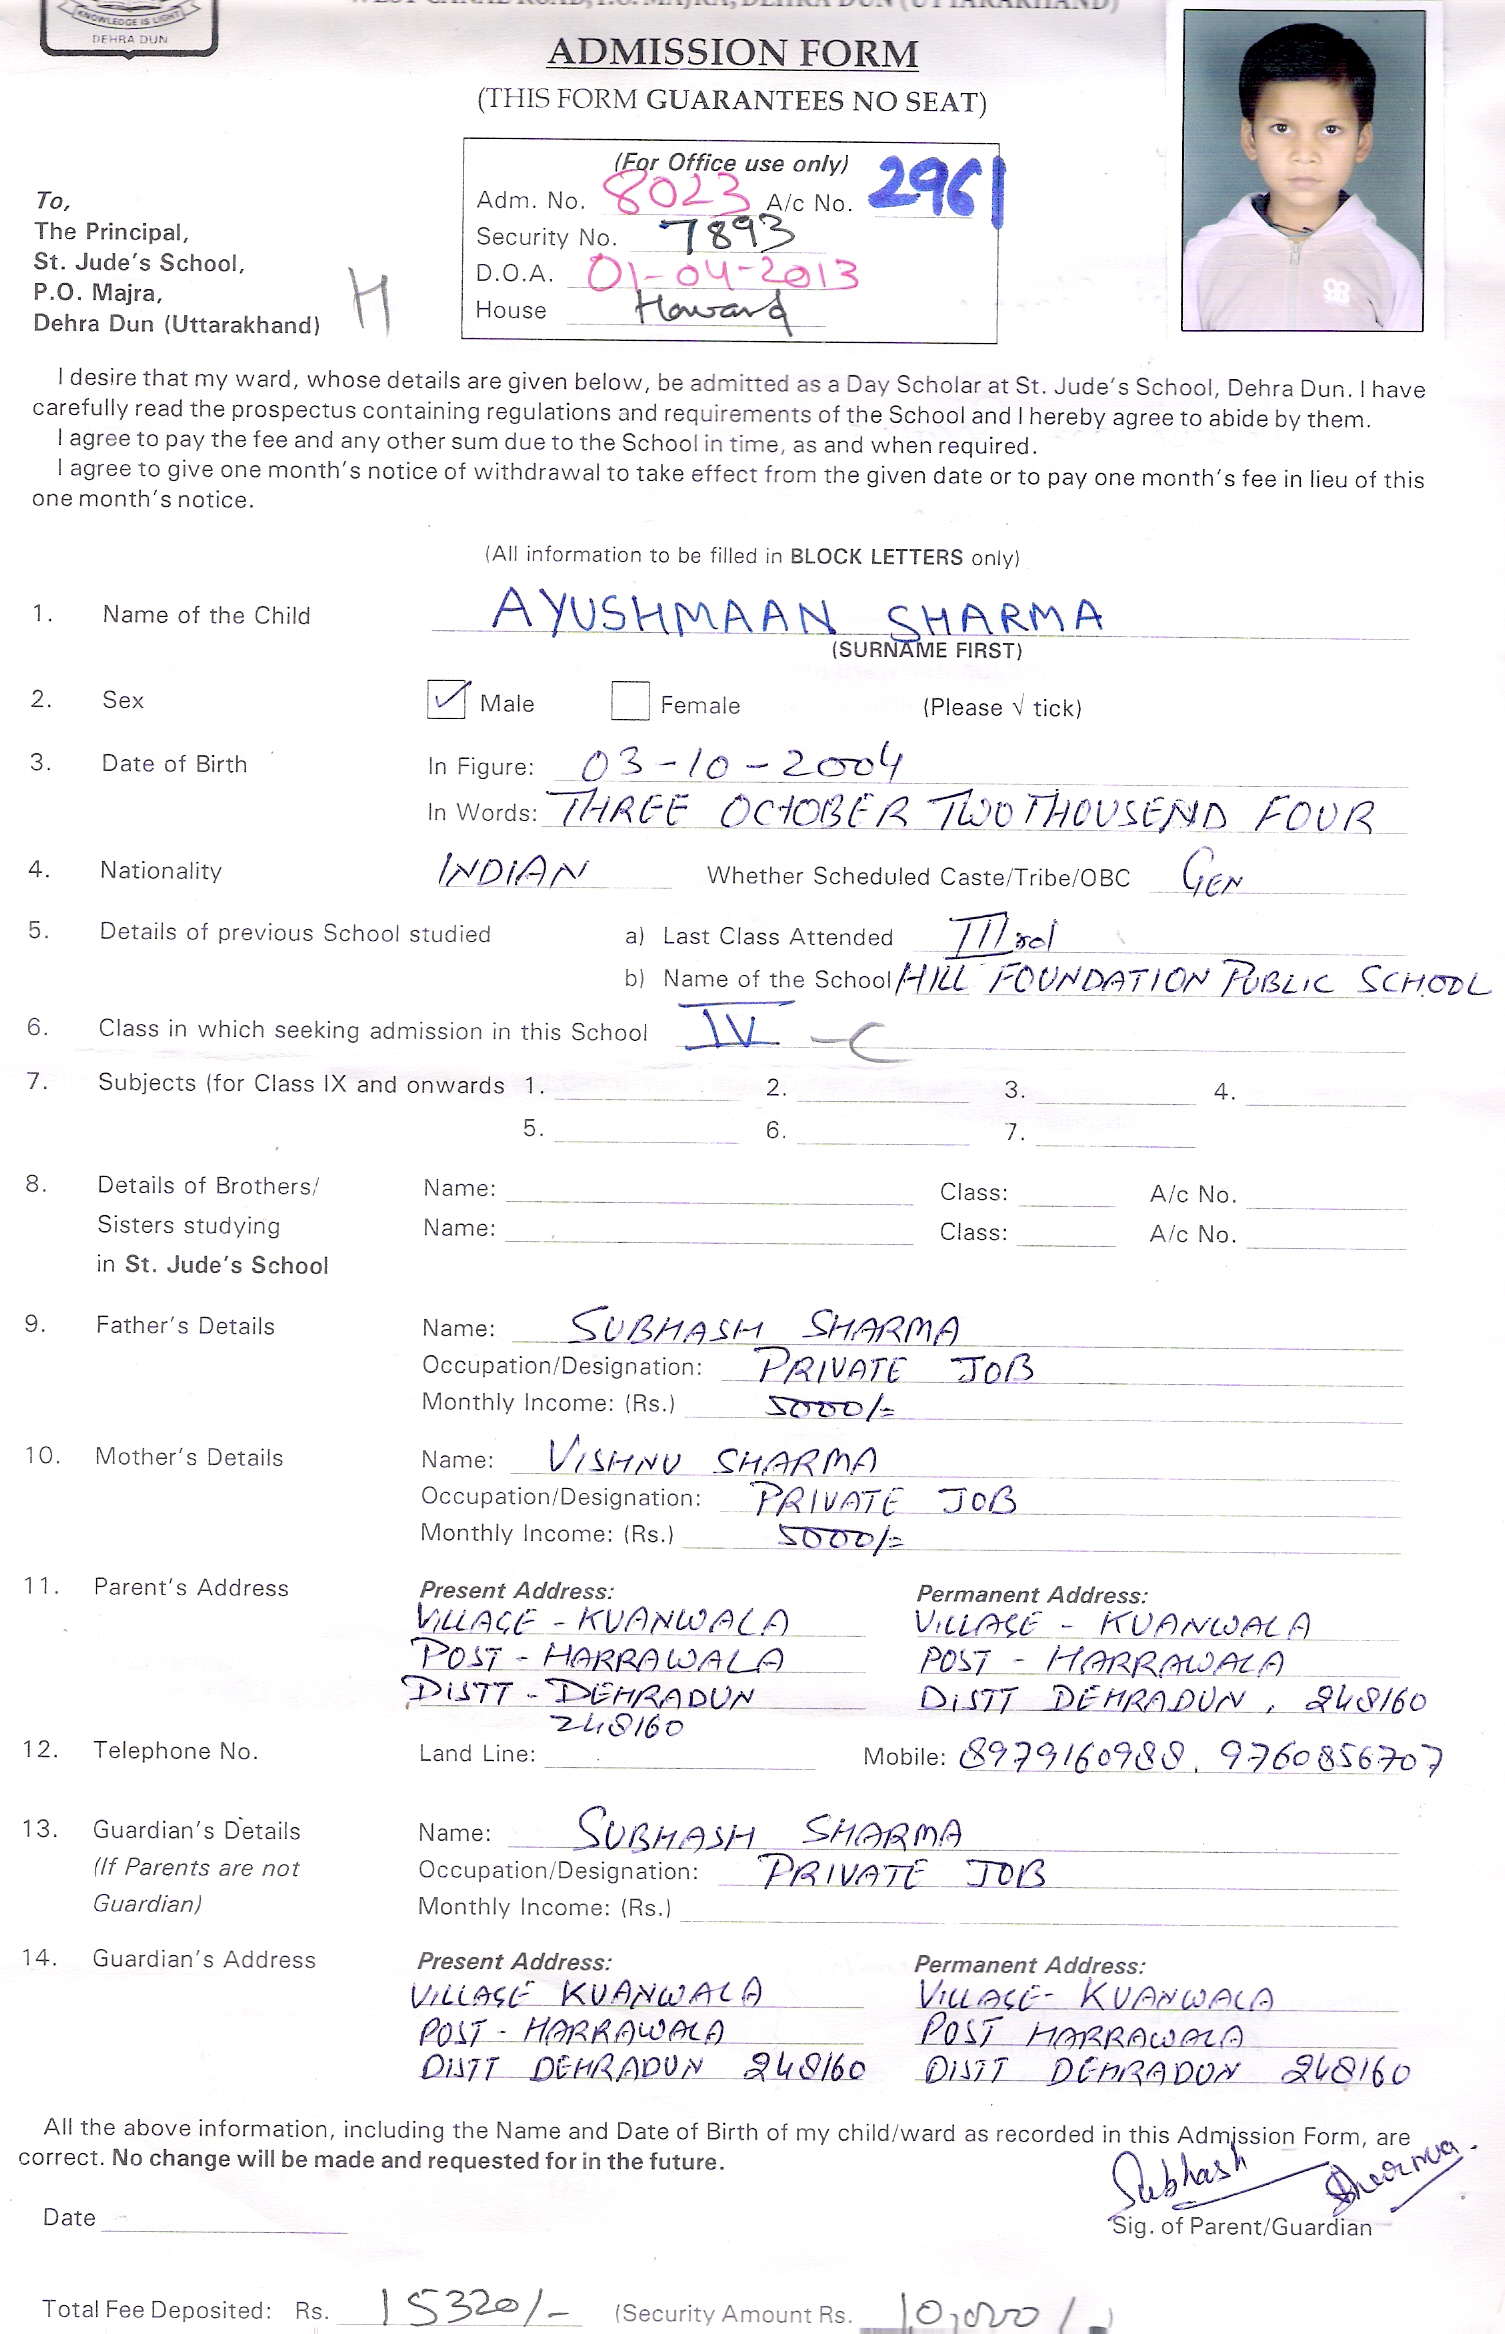 KNOWLEDGE IS LIGHT
DEHRA DUN
WEST CANAL ROAD, P.O. MAJRA, DEHRA DUN (UTTARAKHAND)
ADMISSION FORM
(THIS FORM GUARANTEES NO SEAT)
(For Office use only)
Adm. No. 8023 A/c No. 2961
Security No. 7893
D.O.A. 01-04-2013
House Howard
To,
The Principal,
St. Jude's School,
P.O. Majra,
Dehra Dun (Uttarakhand)
H
I desire that my ward, whose details are given below, be admitted as a Day Scholar at St. Jude's School, Dehra Dun. I have
carefully read the prospectus containing regulations and requirements of the School and I hereby agree to abide by them.
I agree to pay the fee and any other sum due to the School in time, as and when required.
I agree to give one month's notice of withdrawal to take effect from the given date or to pay one month's fee in lieu of this
one month's notice.
(All information to be filled in BLOCK LETTERS only)
1. Name of the Child AYUSHMAAN SHARMA
(SURNAME FIRST)
2. Sex Male Female (Please √ tick)
3. Date of Birth In Figure: 03-10-2004
In Words: THREE OCTOBER TWO THOUSEND FOUR
4. Nationality INDIAN Whether Scheduled Caste/Tribe/OBC GEN
5. Details of previous School studied a) Last Class Attended IIIrd
b) Name of the School HILL FOUNDATION PUBLIC SCHOOL
6. Class in which seeking admission in this School IV - C
7. Subjects (for Class IX and onwards 1. 2. 3. 4.
5. 6. 7.
8. Details of Brothers/ Name: Class: A/c No.
Sisters studying Name: Class: A/c No.
in St. Jude's School
9. Father's Details Name: SUBHASH SHARMA
Occupation/Designation: PRIVATE JOB
Monthly Income: (Rs.) 5000/=
10. Mother's Details Name: VISHNU SHARMA
Occupation/Designation: PRIVATE JOB
Monthly Income: (Rs.) 5000/=
11. Parent's Address Present Address: Permanent Address:
VILLAGE - KUANWALA VILLAGE - KUANWALA
POST - HARRAWALA POST - HARRAWALA
DISTT - DEHRADUN DISTT DEHRADUN, 248160
248160
12. Telephone No. Land Line: Mobile: 8979160988, 9760856707
13. Guardian's Details Name: SUBHASH SHARMA
(If Parents are not Occupation/Designation: PRIVATE JOB
Guardian) Monthly Income: (Rs.)
14. Guardian's Address Present Address: Permanent Address:
VILLAGE KUANWALA VILLAGE- KUANWALA
POST - HARRAWALA POST HARRAWALA
DISTT DEHRADUN 248160 DISTT DEHRADUN 248160
All the above information, including the Name and Date of Birth of my child/ward as recorded in this Admission Form, are
correct. No change will be made and requested for in the future.
Subhash Sharma
Date Sig. of Parent/Guardian
Total Fee Deposited: Rs. 15320/- (Security Amount Rs. 10,000/-